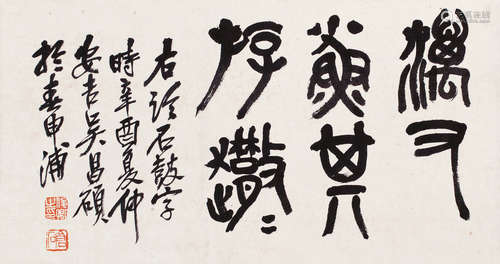 澫又
小魚其
斿
右臨石鼓字
時辛酉夏仲
安吉吳昌碩
於春申浦